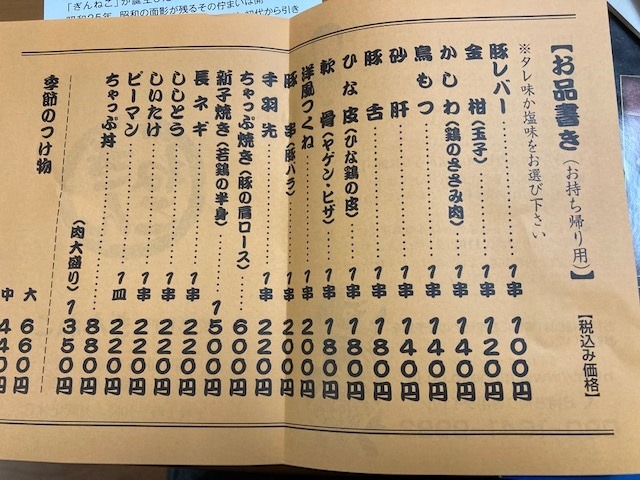 「ぎんねこ」が誕生し
昭和25年、昭和の面影が残るその佇まいは開
代から引き
【お品書き(お持ち帰り用)】【税込み価格】
※タレ味か塩味をお選び下さい
豚レバー……1串100円
金柑(玉子)……1串120円
かしわ(鶏のささみ肉)……1串140円
鳥もつ……1串140円
砂肝……1串140円
豚舌……1串180円
ひな皮(ひな鶏の皮)……1串180円
軟骨(ヤゲン・ヒザ)……1串180円
洋風つくね……1串200円
豚串(豚バラ)……1串200円
手羽先……1串220円
ちゃっぷ焼き(豚の肩ロース)……600円
新子焼き(若鶏の半身)……1500円
長ネギ……1串220円
ししとう……1串220円
しいたけ……1串220円
ピーマン……1皿220円
ちゃっぷ丼……880円
(肉大盛り)1350円
季節のつけ物
大 660円
中 440円